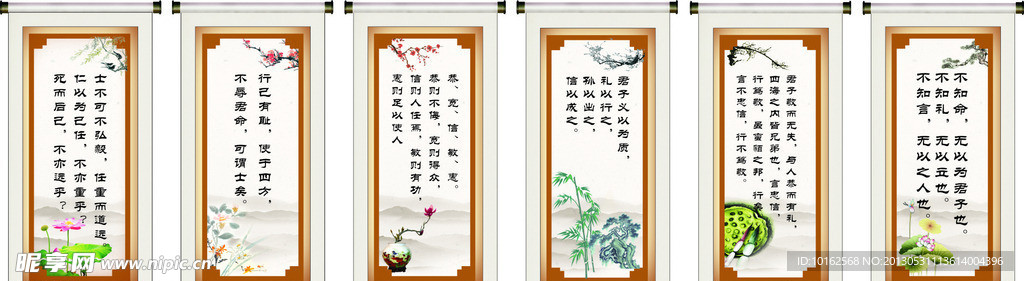 士不可不弘毅，任重而道远。
仁以为己任，不亦重乎？
死而后已，不亦远乎？
行己有耻，使于四方，
不辱君命，可谓士矣。
恭、宽、信、敏、惠。
恭则不侮，宽则得众，
信则人任焉，敏则有功，
惠则足以使人
君子义以为质，
礼以行之，
孙以出之，
信以成之。
君子敬而无失，与人恭而有礼，
四海之内皆兄弟也，言忠信，
行篤敬，虽蛮貊之邦，行矣
言不忠信，行不篤敬。
不知命，无以为君子也。
不知礼，无以立也。
不知言，无以之人也。
昵享网 www.nipic.cn
ID:10162568 NO:20130531113614004396